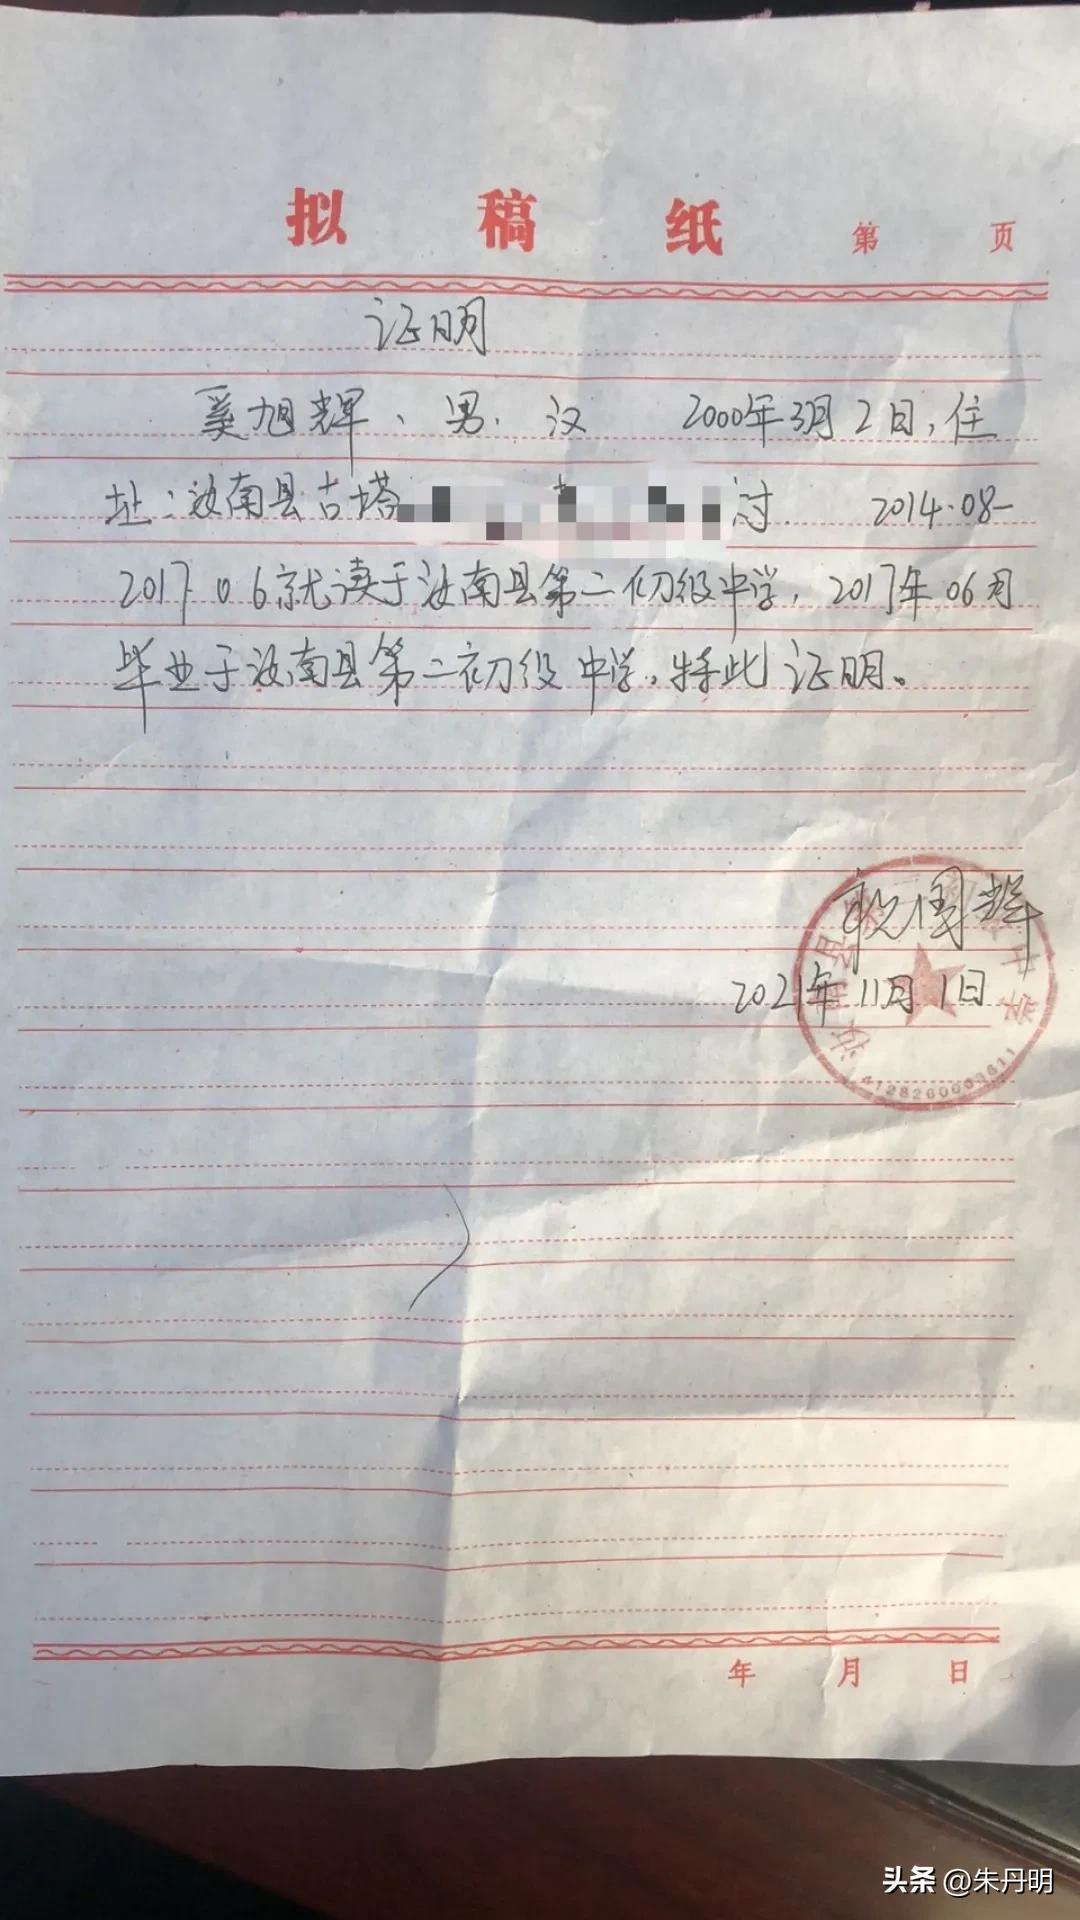 拟稿纸 第 页
证明
奚旭辉、男. 汉 2000年3月2日,住
址:汝南县古塔 村. 2014.08-
2017.06就读于汝南县第二初级中学, 2017年06月
毕业于汝南县第二初级中学,特此证明。
祝国辉
2021年11月1日
年 月 日
头条 @朱丹明